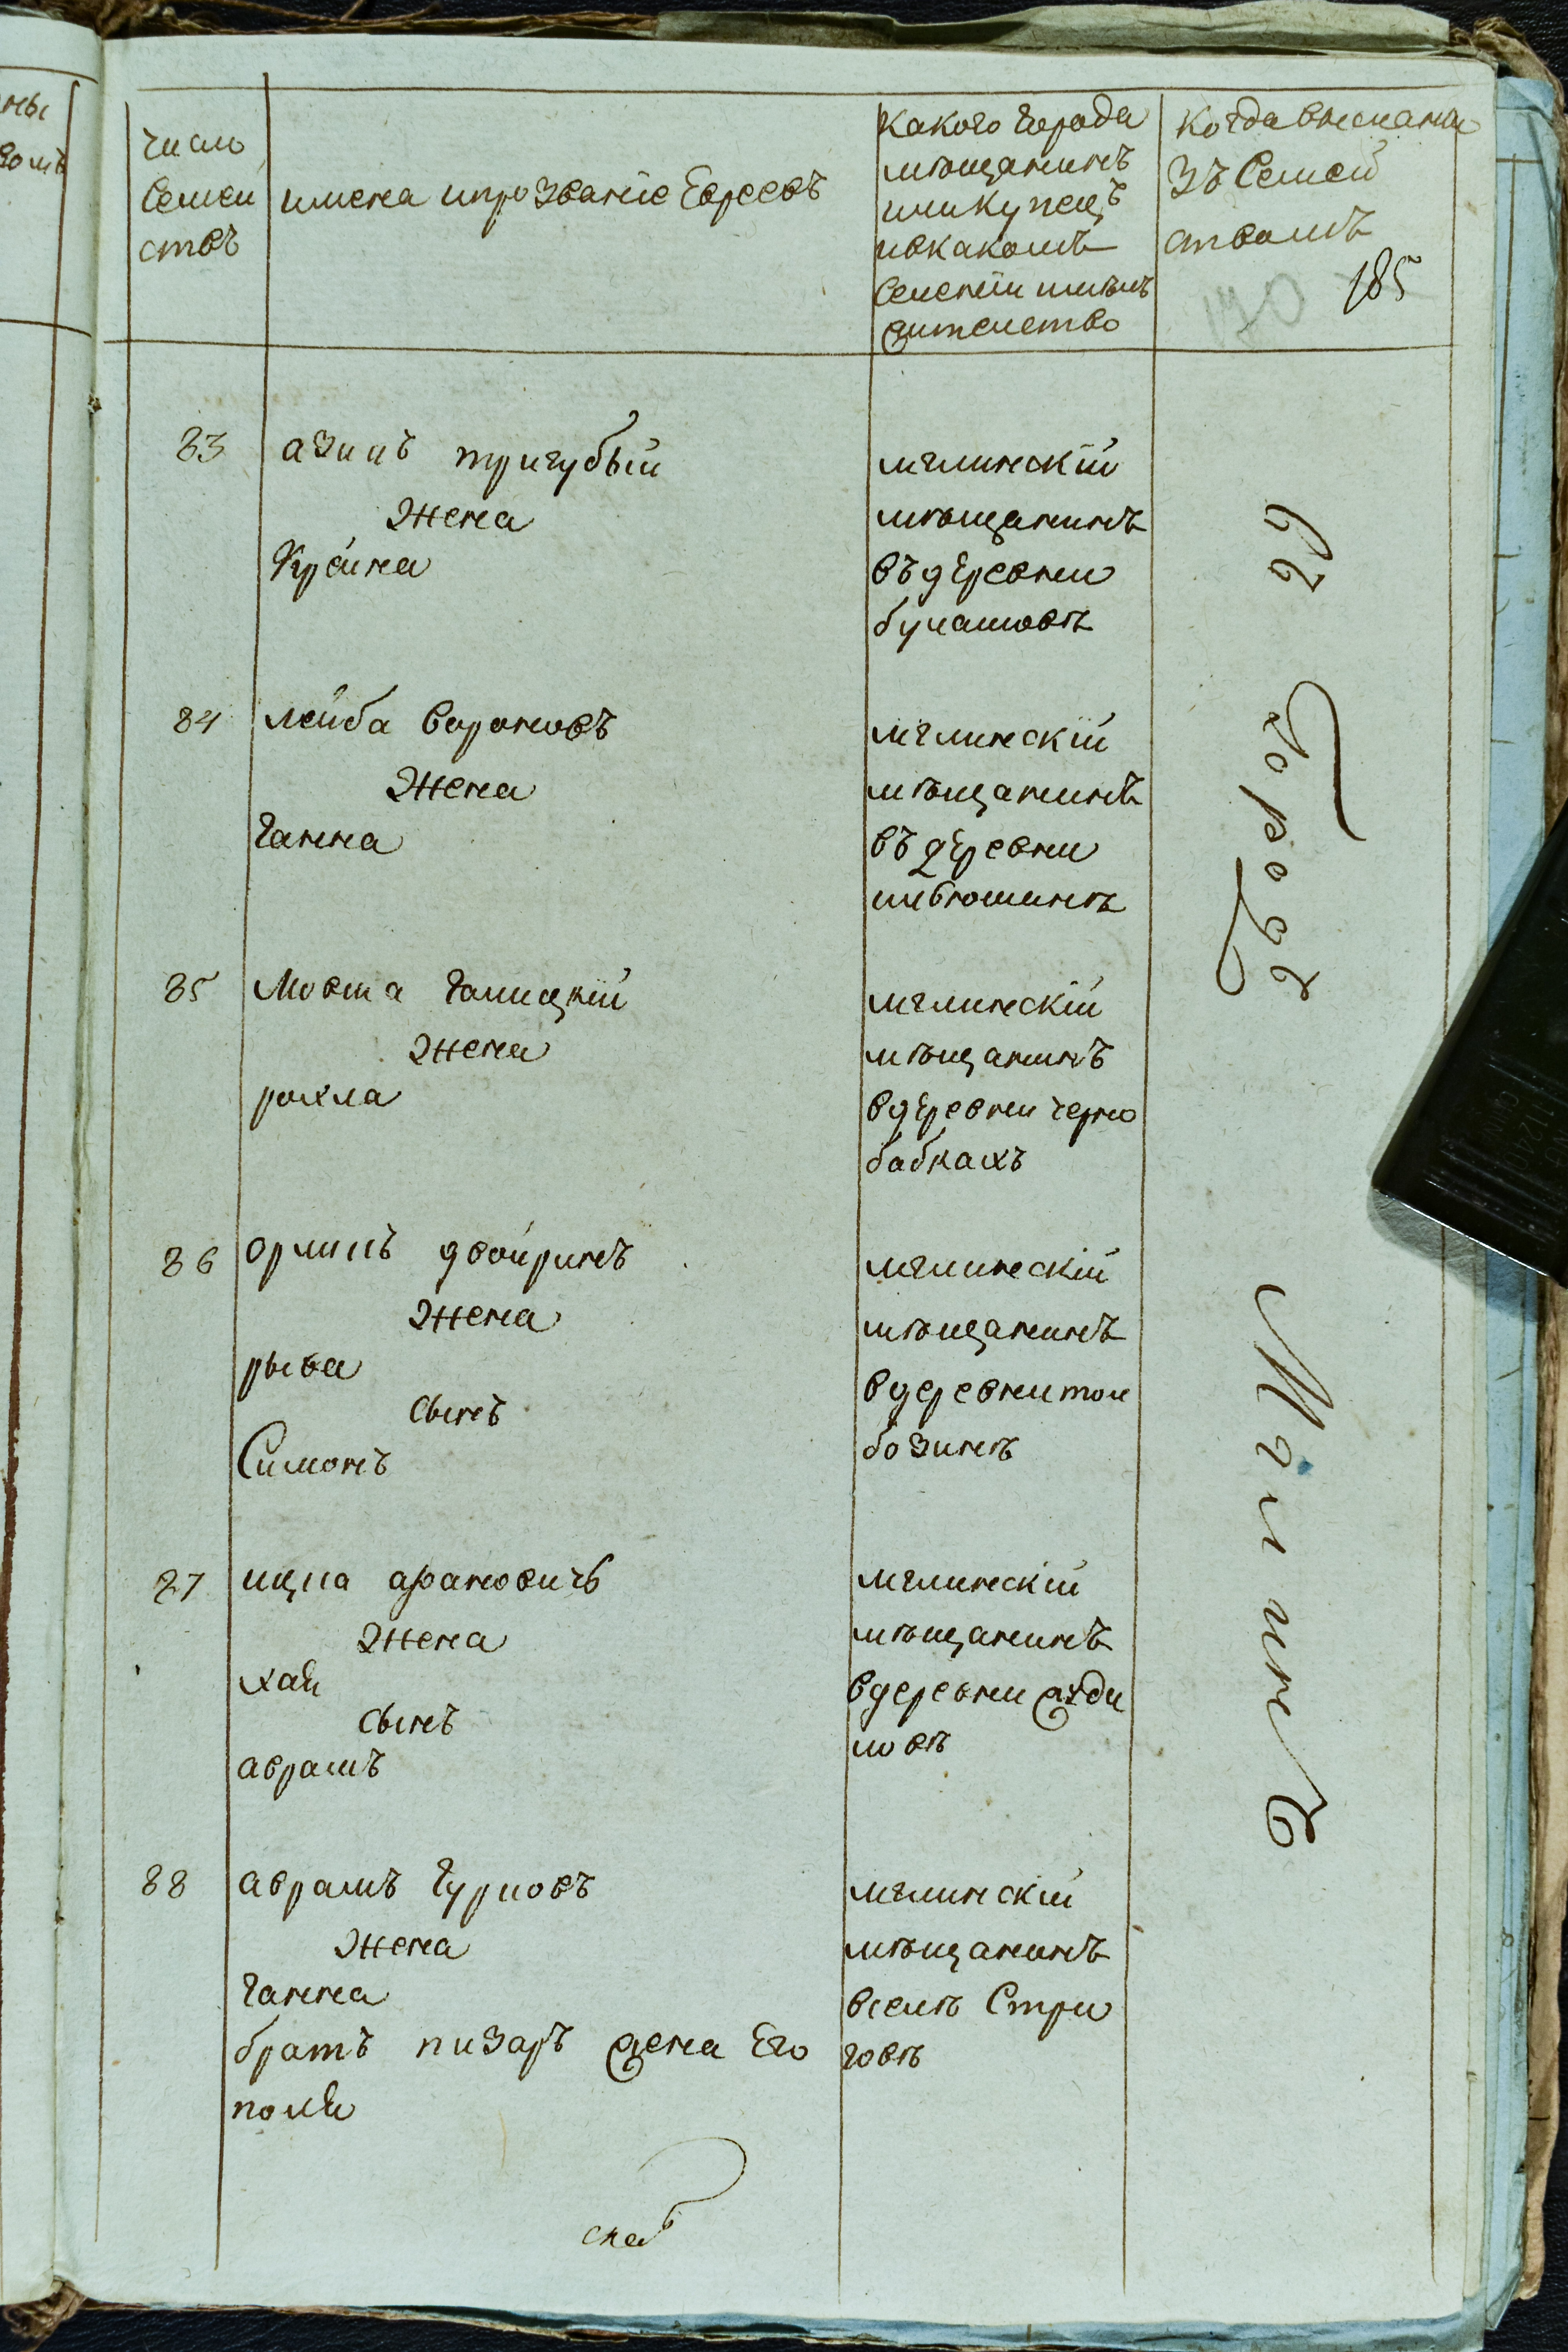 число
Семей
ствъ
имена ипрозваніе Евреевъ
какого города
мѣщанинъ
иликупецъ
ивкакомъ
Селеніи имѣлъ
жителство
когдавысланы
зъ Семей
ствомъ
185
170
83
азикъ тригубый
жена
Крейна
мглинскій
мѣщанинъ
въдеревни
булашовѣ
84
лейба вороновъ
жена
ганна
мглинскій
мѣщанинъ
въдеревни
85
Мовша галицкій
жена
рохла
мглинскій
мѣщанинъ
вдеревни черно
бабкахъ
86
орликъ двойринъ
жена
рыва
сынъ
Симонъ
мглинскій
мѣщанинъ
вдеревни тол
бозинѣ
87
ицка ароновичъ
жена
хая
сынъ
аврамъ
мглинскій
мѣщанинъ
вдеревни
ловѣ
88
аврамъ гурковъ
жена
ганна
братъ лизаръ жена Его
полія
мглинскій
мѣщанинъ
вселѣ Стри
говѣ
въ
городъ
Мглинъ